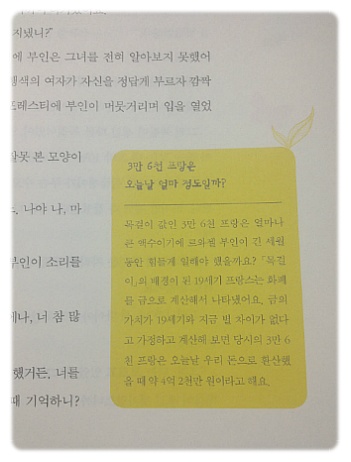 지냈니?"
에 부인은 그녀를 전혀 알아보지 못했어
색의 여자가 자신을 정답게 부르자 깜짝
포레스티에 부인이 머뭇거리며 입을 열었
잘못 본 모양이
나야 나, 마
부인이 소리를
너 참 많
했거든. 너를
때 기억하니?
3만 6천 프랑은
오늘날 얼마 정도일까?
목걸이 값인 3만 6천 프랑은 얼마나
큰 액수이기에 르와젤 부인이 긴 세월
동안 힘들게 일해야 했을까요? 「목걸
이」의 배경이 된 19세기 프랑스는 화폐
를 금으로 계산해서 나타냈어요. 금의
가치가 19세기와 지금 별 차이가 없다
고 가정하고 계산해 보면 당시의 3만 6
천 프랑은 오늘날 우리 돈으로 환산했
을 때 약 4억 2천만 원이라고 해요.